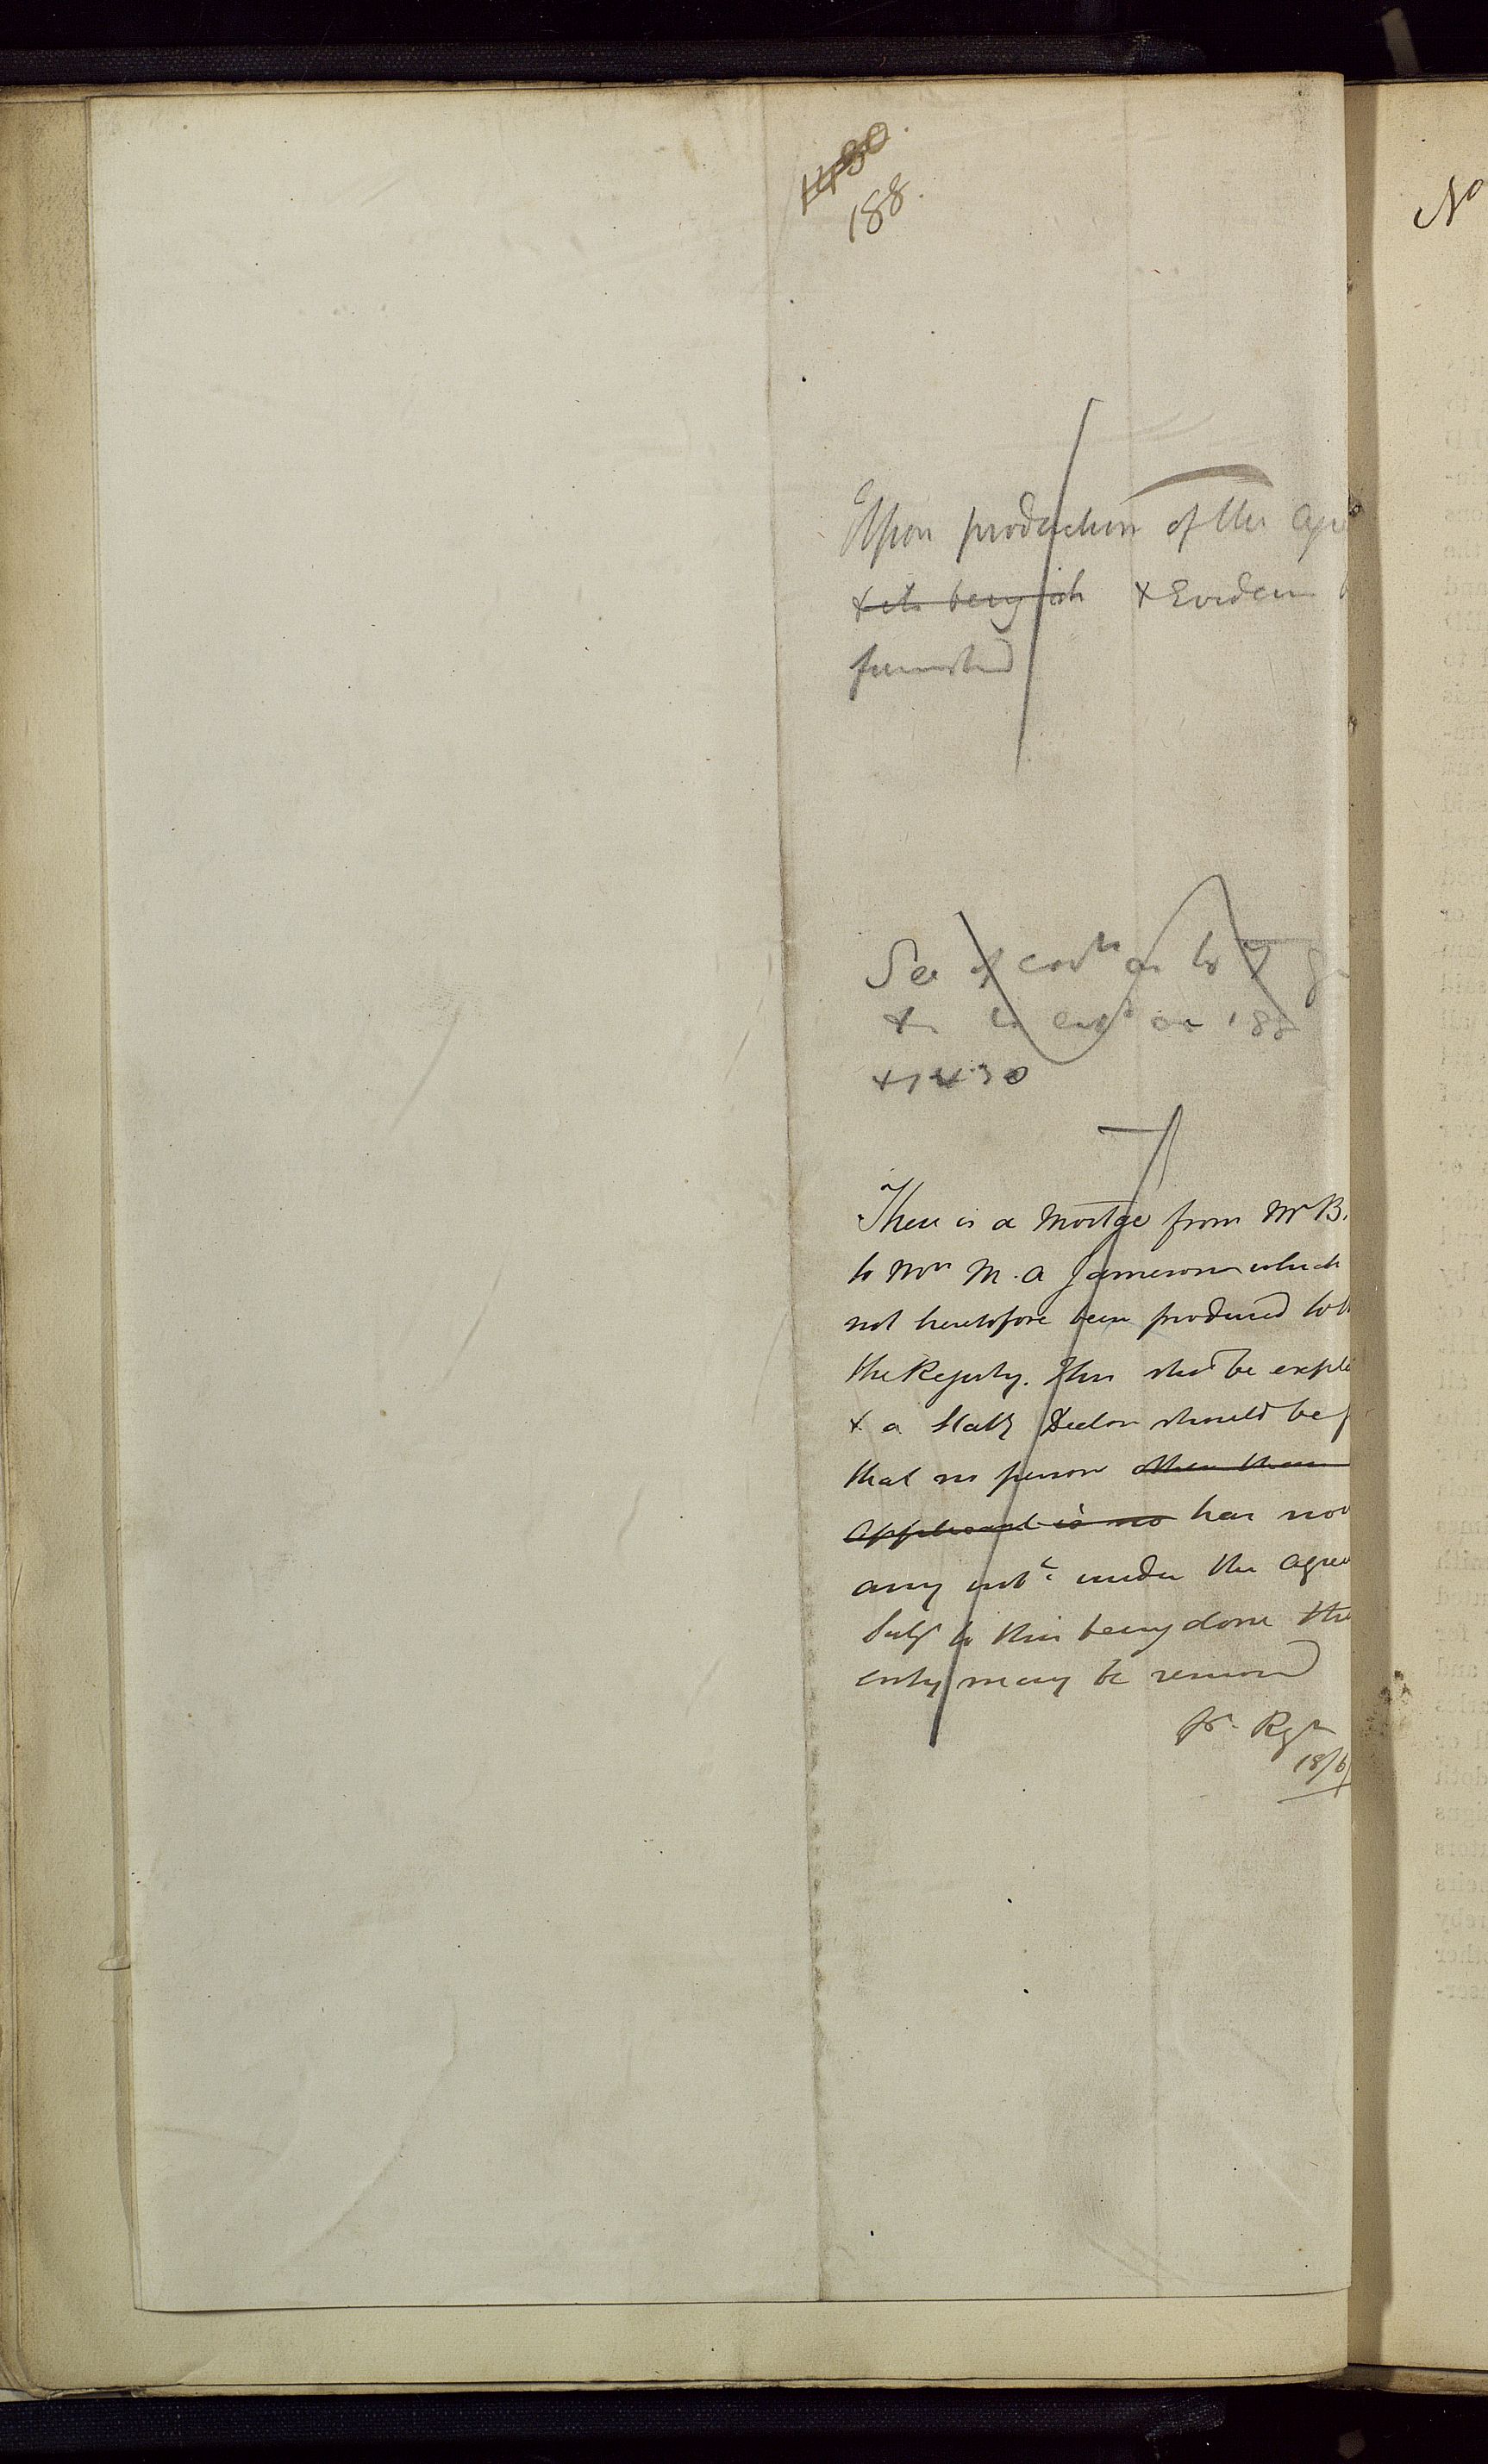 1430
188.
Upon production of the Agr
& its being & Eviden
furnished
See if
on 188
& 1430
There is a Mortge from Mr B.
to Mrs M. A Jameson which
not heretofore been produced to
the Registry. This shd be expl
& a Staty Declon should be f
that no person other than
Applicant is no has nor
any intt under the Agree
Subj to this being done the
entry may be removed
fr Rgr
18/6/
No